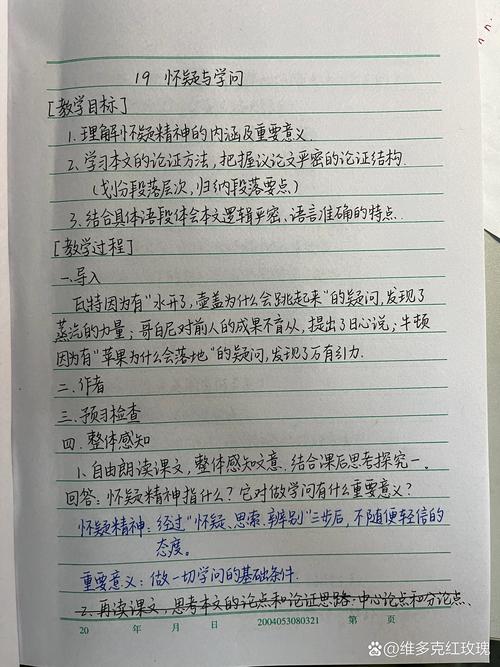 19 怀疑与学问
[教学目标]
1.理解怀疑精神的内涵及重要意义.
2.学习本文的论证方法,把握议论文严密的论证结构.
(划分段落层次,归纳段落要点)
3.结合具体语段体会本文逻辑严密、语言准确的特点.
[教学过程]
一.导入
瓦特因为有"水开了,壶盖为什么会跳起来"的疑问,发现了
蒸汽的力量;哥白尼对前人的成果不盲从,提出了日心说;牛顿
因为有"苹果为什么会落地"的疑问,发现了万有引力.
二.作者
三.预习检查
四.整体感知
1.自由朗读课文,整体感知文意、结合课后思考探究一。
回答:怀疑精神指什么?它对做学问有什么重要意义?
怀疑精神:经过"怀疑、思索、辨别"三步后,不随便轻信的
态度。
重要意义:做一切学问的基础条件.
2.再读课文,思考本文的论点和论证思路:中心论点和分论点、
20 年 月 日 2004053080321 第 页
百家号/维多克红玫瑰